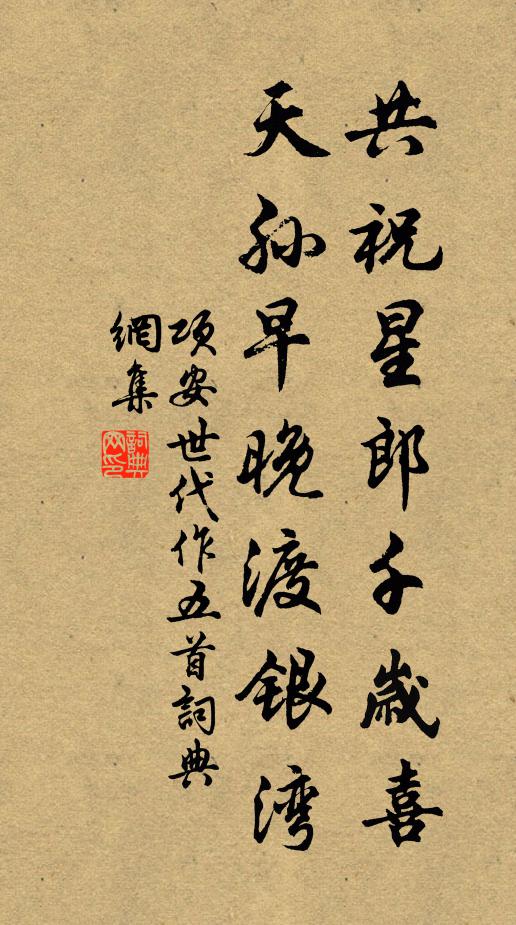 共祝星郎千歲喜
天孙早晚渡银湾
项安世代作五首詞典
網集
詞典网印